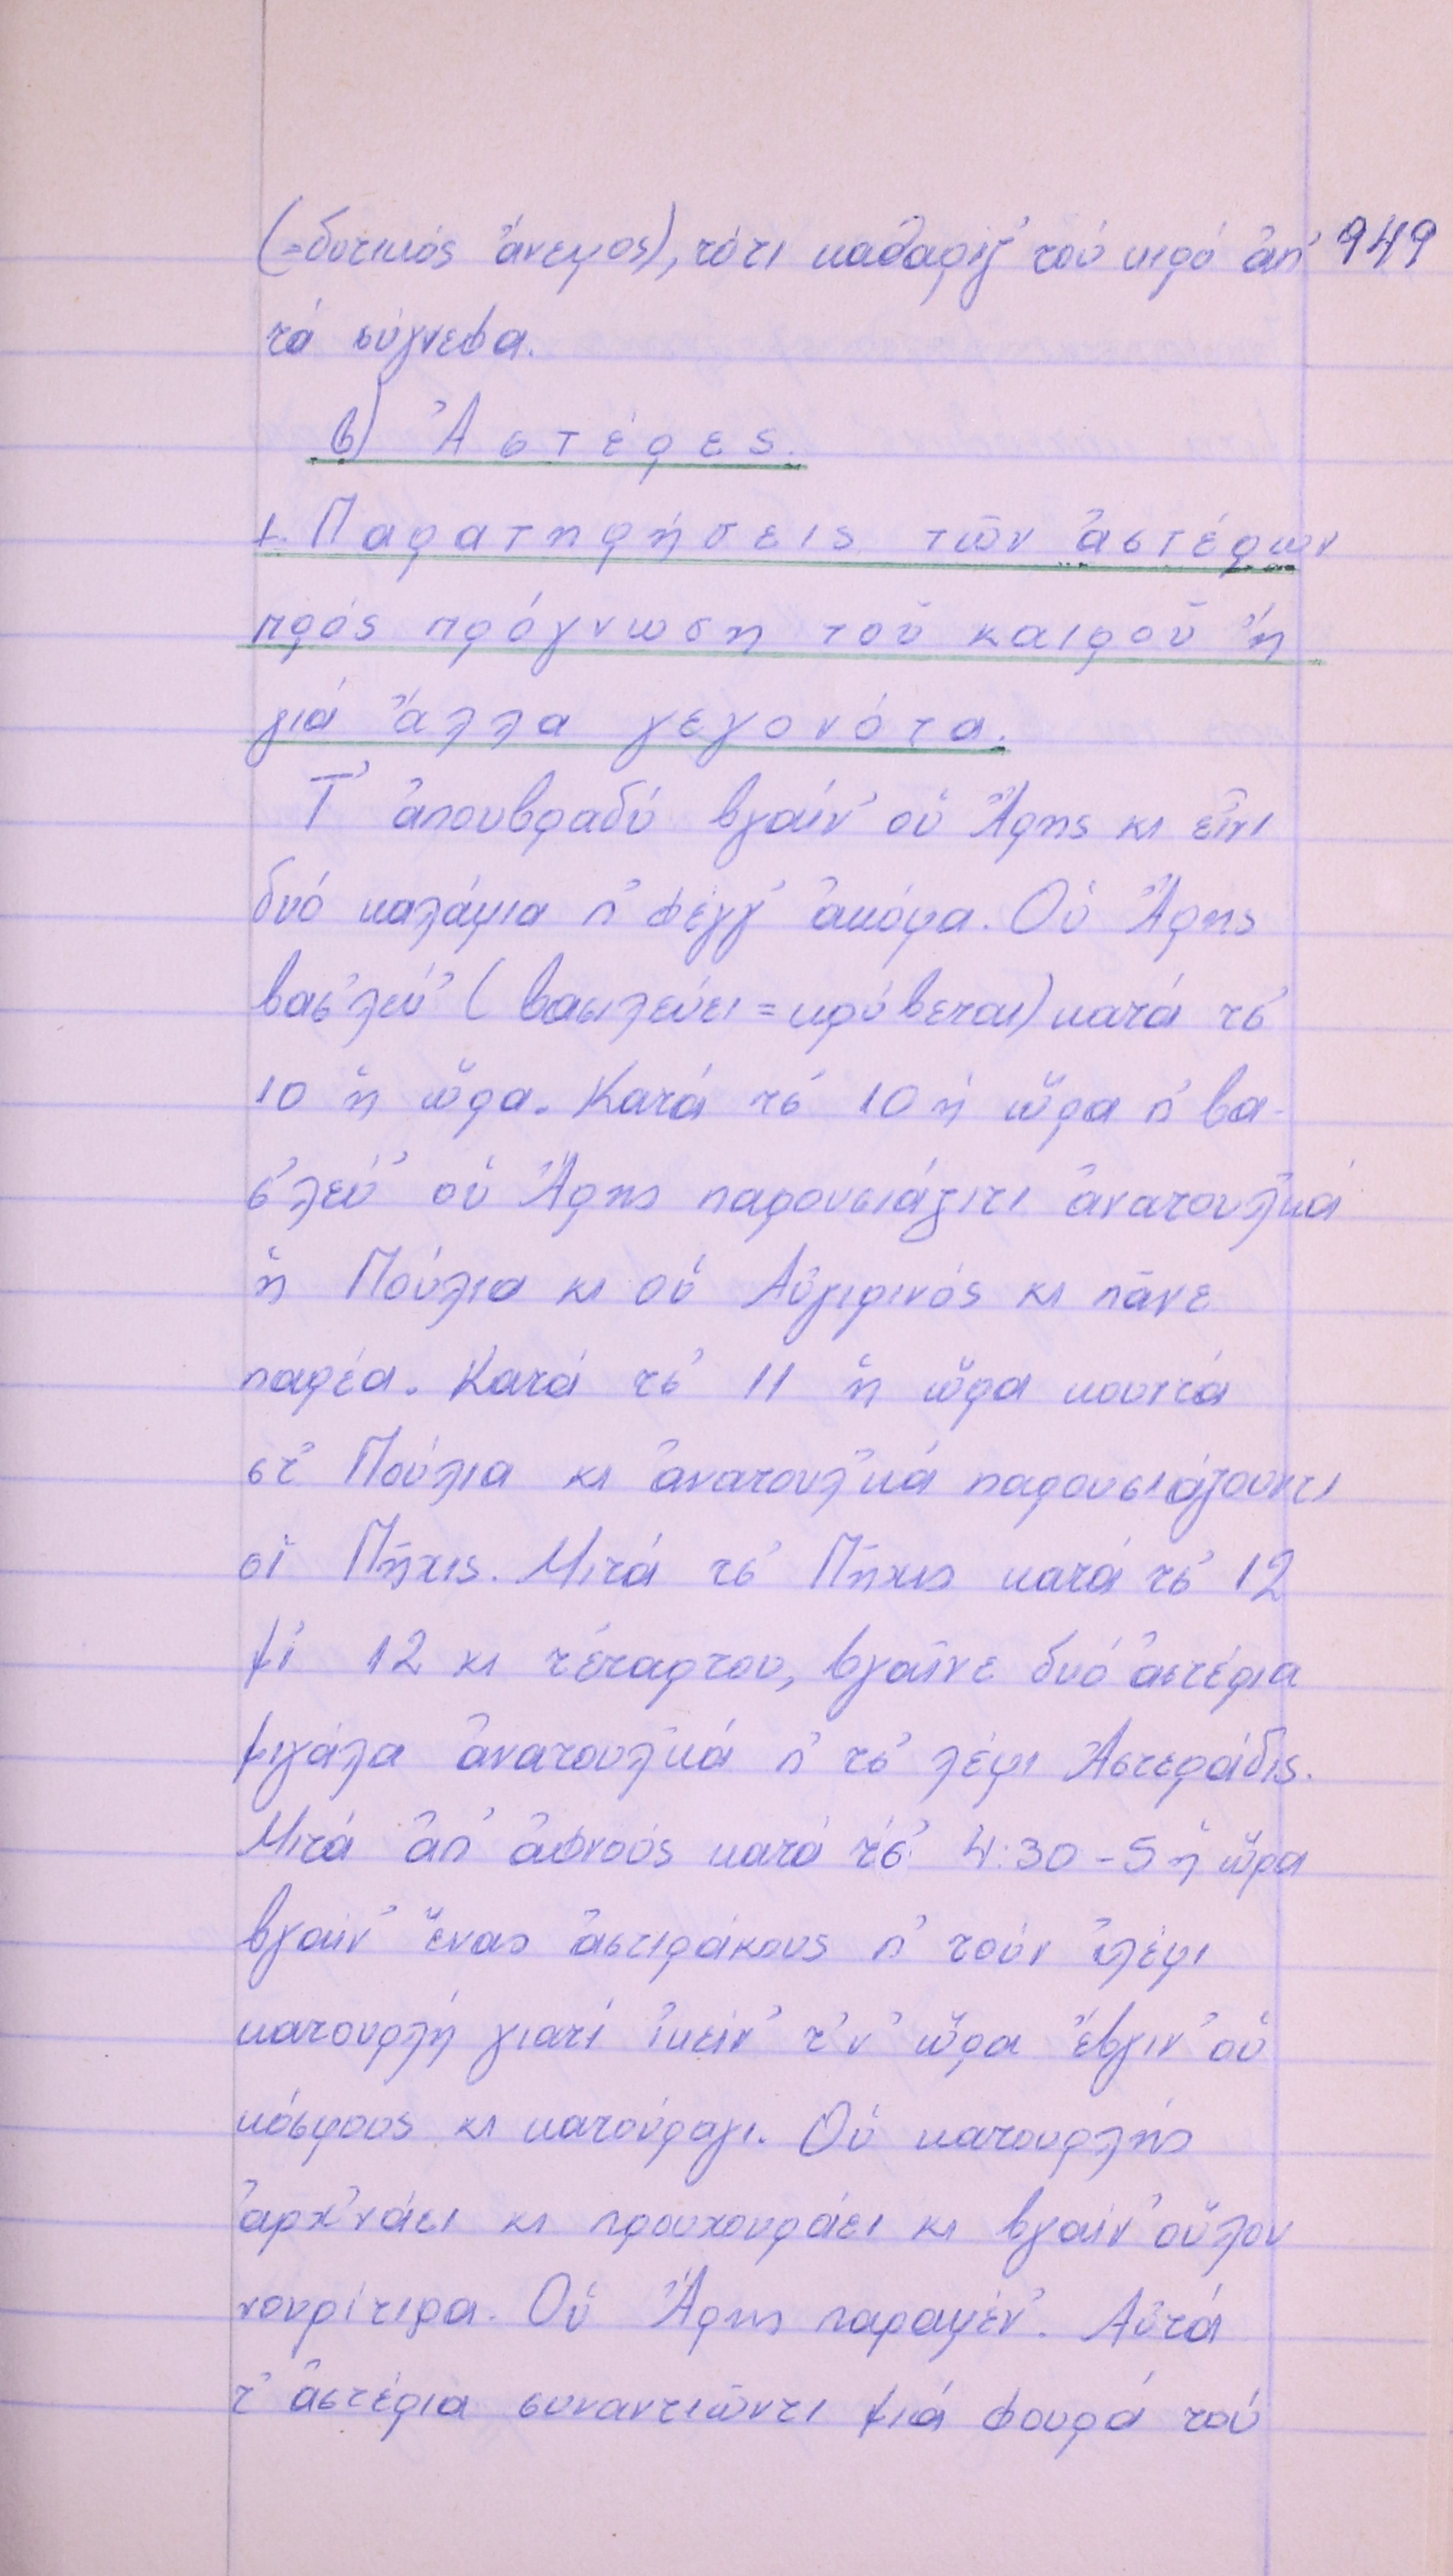 (=δυτικός ἄνεμος), τότι καθαρίζ' τού κιρό ἀπ' 949
τά σύγνεφα.
β) Ἀστέρες.
1. Παρατηρήσεις τῶν ἀστέρων
πρός πρόγνωση τοῦ καιροῦ ἤ
γιά ἄλλα γεγονότα.
Τ' ἀπουβραδύ βγαίν' οὑ Ἄρης κι εἶνι
δυό καλάμια π' φέγγ' ἀκόμα. Οὑ Ἄρης
βασ'λεύ' (βασιλεύει = κρύβεται) κατά τσ'
10 ἡ ὥρα. Κατά τσ' 10 ἡ ὥρα π' βα-
σ'λεύ' οὑ Ἄρης παρουσιάζιτι ἀνατουλ'κά
ἡ Πούλια κι οὑ Αὐγιρινός κι πᾶνε
παρέα. Κατά τσ' 11 ἡ ὥρα κουντά
στ' Πούλια κι ἀνατουλ'κά παρουσιάζουντι
οἱ Πῆχις. Μιτά τσ' Πῆχις κατά τσ' 12
μί 12 κι τέταρτου, βγαῖνε δυό ἀστέρια
μιγάλα ἀνατουλ'κά π' τσ' λέμι Ἀστεράδις.
Μιτά ἀπ' ἀφνούς κατά τσ' 4:30 - 5 ἡ ὥρα
βγαίν' ἕνας ἀστιράκους π' τούν λέμι
κατουρλή γιατί ἰκείν' τ'ν ὥρα ἔβγιν' οὑ
κόσμους κι κατούραγι. Οὑ κατουρλής
ἀρχ'νάει κι προυχουράει κι βγαίν' οὗλου
νουρίτιρα. Οὑ Ἄρης παραμέν'. Αὐτά
τ' ἀστέρια συναντιῶντι μιά φουρά τού